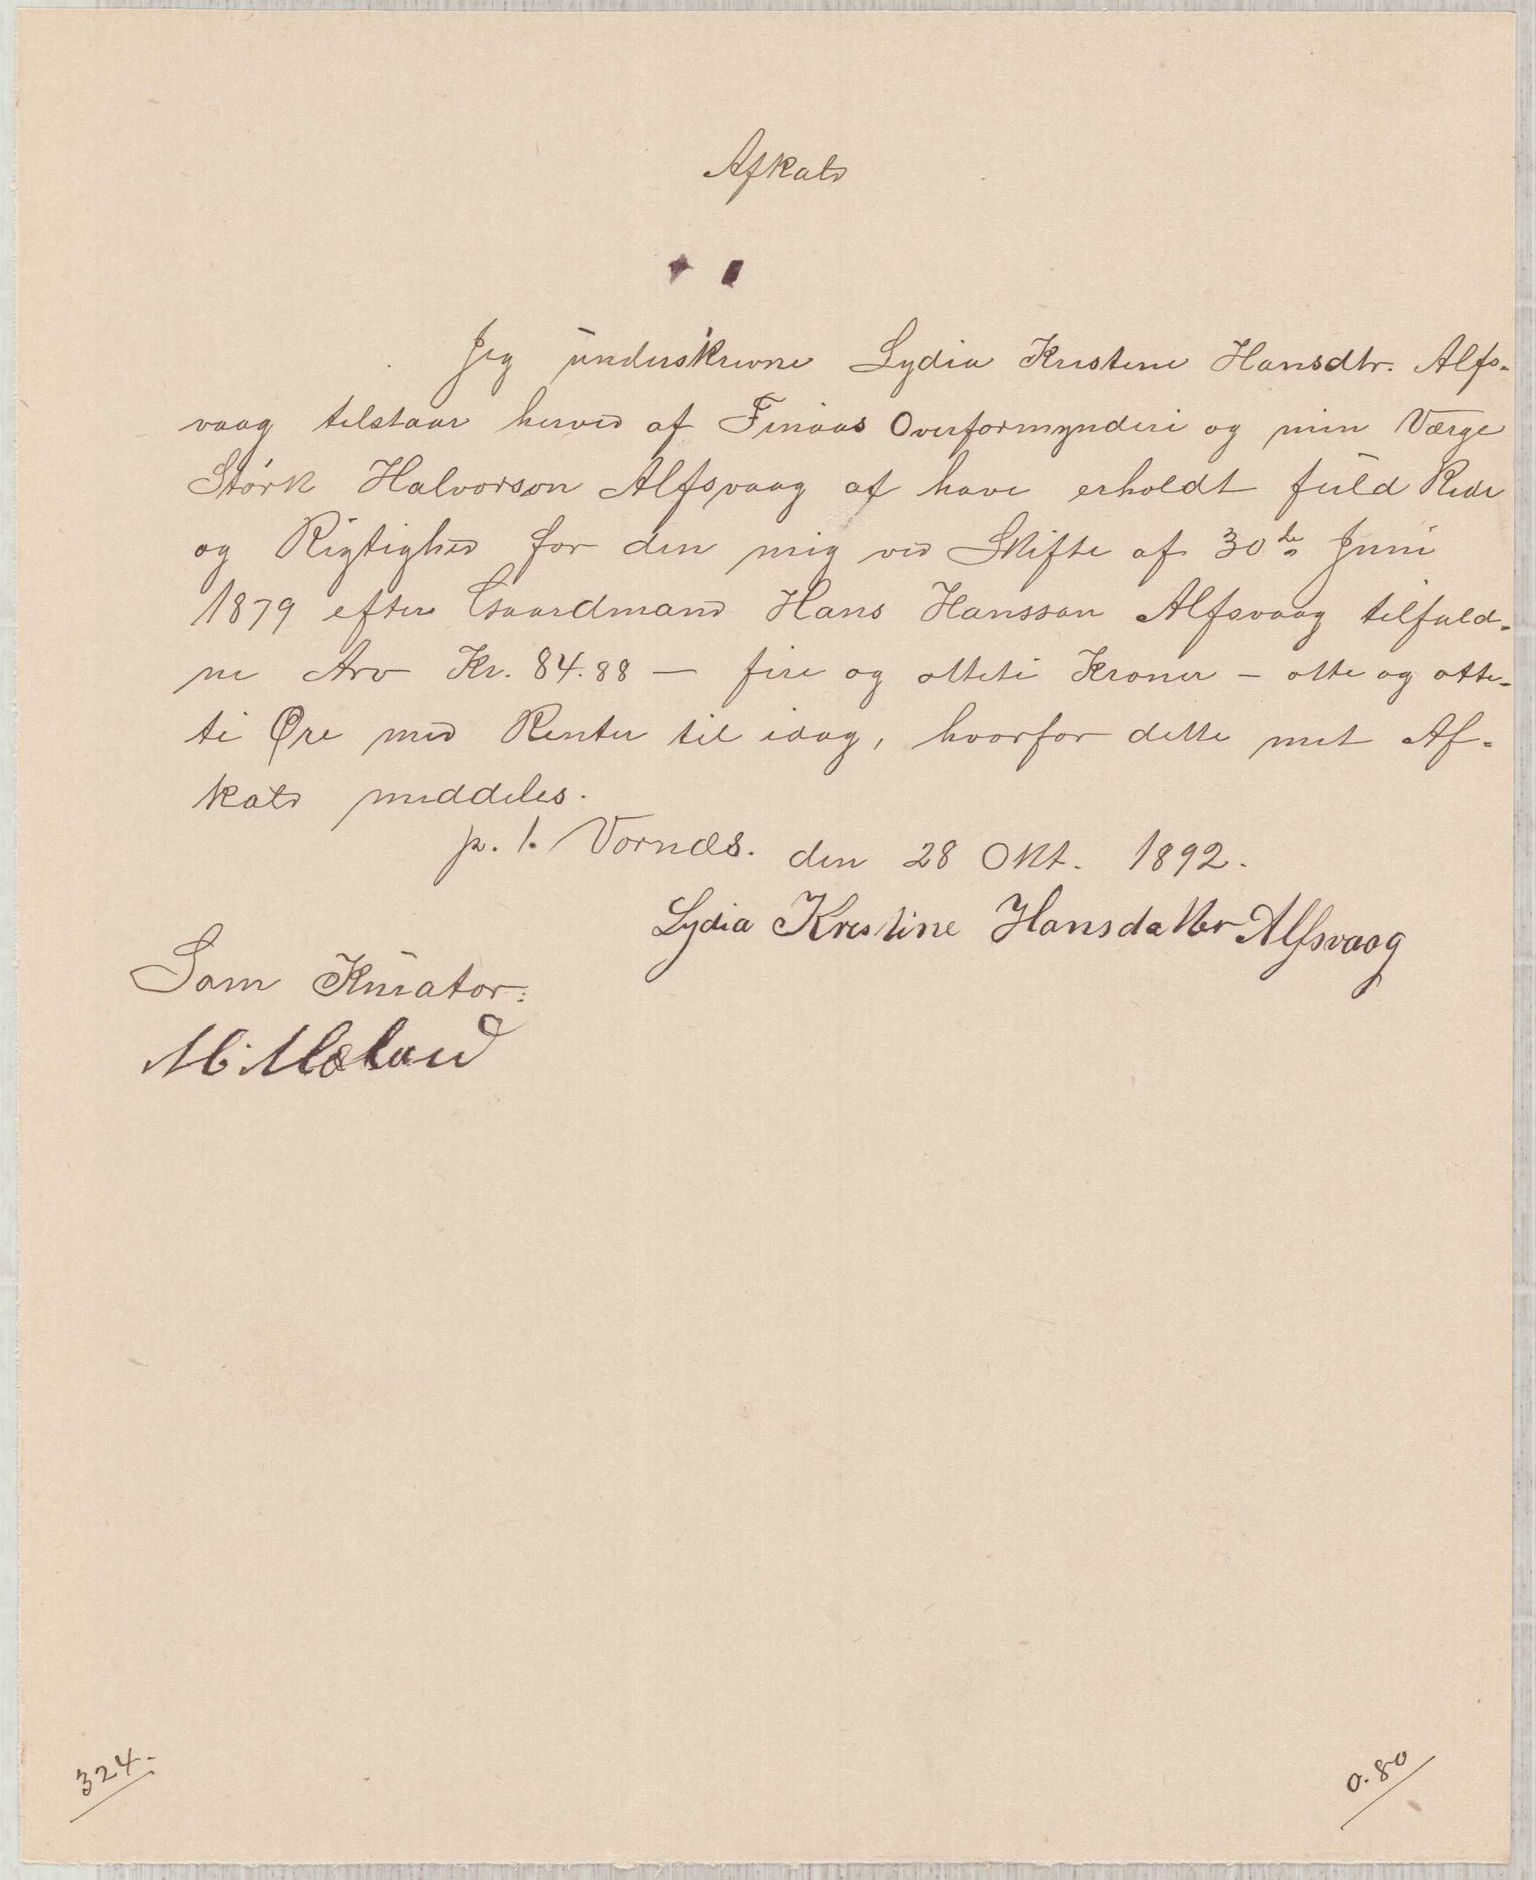 Afkald
Jeg underskrevne Lydia Kristene Hansdtr. Alfs-
vaag tilstaar herved af Finaas Overformynderi og min Værge
Størk Halvorson Alfsvaag af have erholdt fuld Rede
og Rigtighed for den mig ved Skifte af 30de Juni
1879 efter Gaardmand Hans Hansson Alfsvaag tilfald-
ne Arv Kr. 84.88 — fire og otteti Kroner – otte og otte-
ti Øre med Renter til idag, hvorfor dette mit Af-
kald meddeles.
p. t. Vornæs. den 28 Okt. 1892.
Lydia Kristine Hansdatter Alfsvaag
Som Kurator:
M. Mæland
324.
0.80